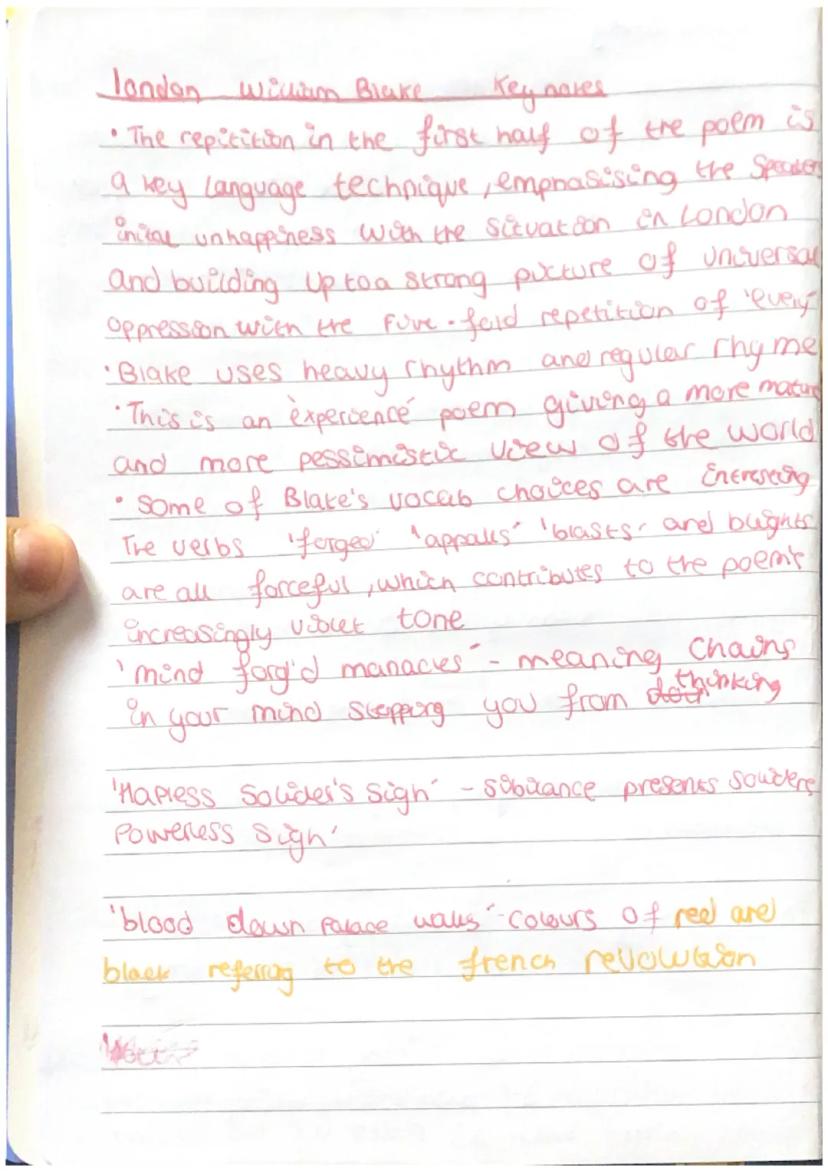 london William Blake Key notes
• The repitition in the first half of the poem is
a key language technique, emphasising the Speakers
inital unhappiness with the situation in London
and building up to a strong picture of universal
oppression with the five-fold repetition of 'every'
• Blake uses heavy rhythm and regular rhyme
• This is an 'experience' poem giving a more mature
and more pessimistic view of the world
• Some of Blake's vocab choices are interesting
The verbs 'forged' 'appalls' 'blasts' and blights
are all forceful, which contributes to the poem's
increasingly violet tone
'mind forg'd manacles' - meaning chains
in your mind stopping you from thinking
'Hapless Solider's Sigh' - sibilance presents soliders
Powerless Sigh'
'blood down palace walls' - colours of red and
black referring to the french revolution